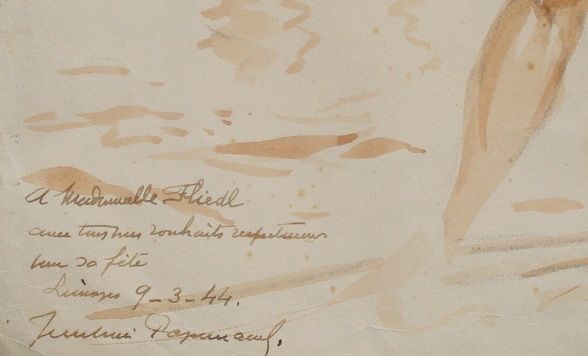 A Mademoiselle Fliedl
avec tous mes souhaits respectueux
pour sa fête
Limoges 9-3-44.